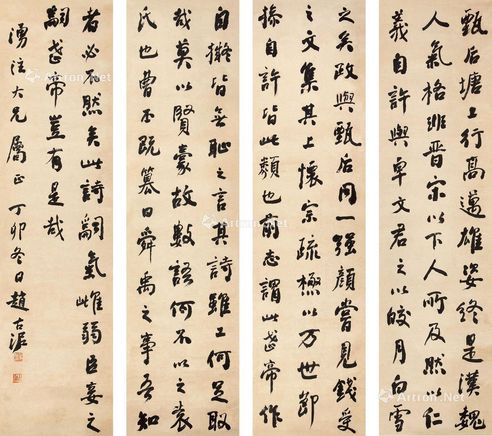 甄后塘上行高邁雄姿終是漢魏
人氣格非晉宋以下人所及然以仁
義自許與卓文君之以皎月白雪
之矣政與甄后同一強顏嘗見錢受
之文集其上懷宗疏極以万世節
操自許皆此類也前志謂此武帝作
自擬皆無恥之言其詩雖工何足取
哉莫以賢豪故數語何不以之袁
氏也曹丕既篡曰舜禹之事吾知
者必不然矣此詩詞氣雌弱臣妾之
詞武帝豈有是哉
湧泫大兄屬正丁卯冬日趙古泥
Artron.Net
Artron.Net
Artron.Net
Artron.Net